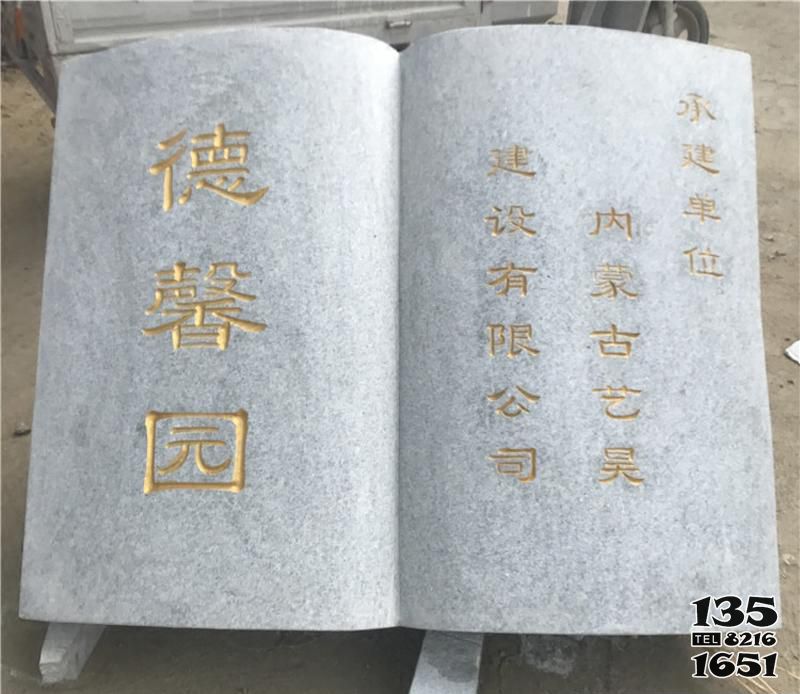 德馨园
承建单位
内蒙古艺昊
建设有限公司
135
TEL 8216
1651